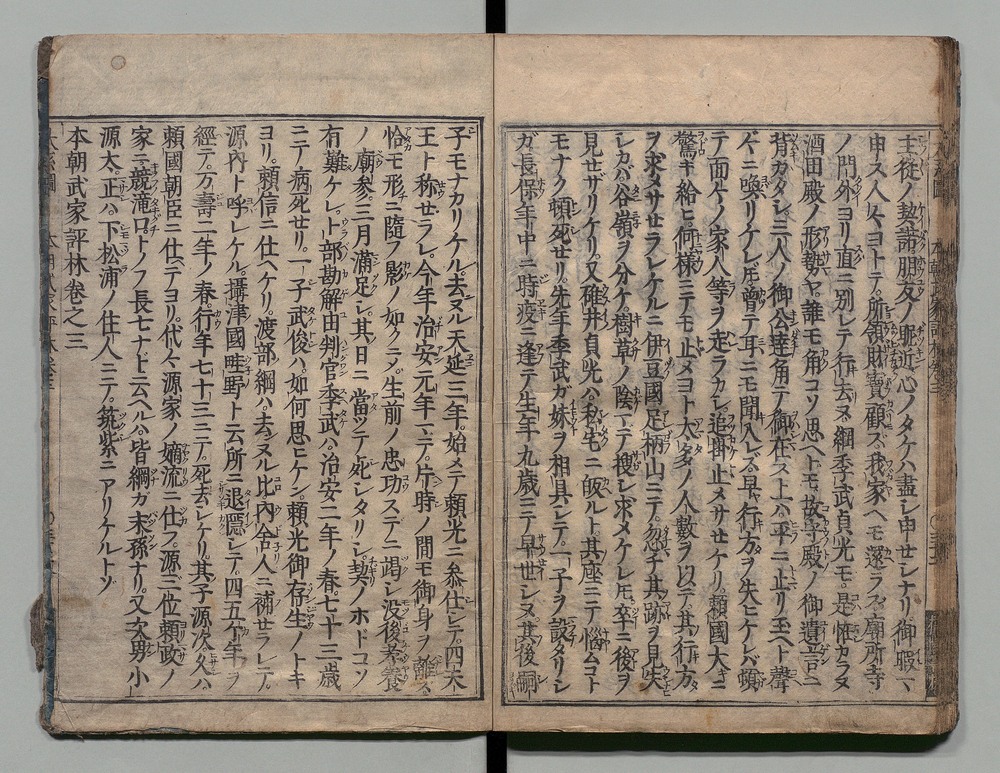 主従ノ契諾朋友ノ眤近心ノタケハ盡シ申セシナリ御暇
申ス人々ヨトテ所領財寶顧ズ我家ヘモ還ラス廟所寺
ノ門外ヨリ直ニ別レテ行去ヌ綱季武貞光モ是悋カラヌ
酒田殿ノ形勢ヤ誰モ角コソ思ヘトモ故守殿ノ御遺言ニ
背カタシ三人ノ御公達角テ御在ス上ハ平ニ止リ玉ヘト聲
々ニ喚リケレ𪜈曾テ耳ニモ聞入レズ早行方ヲ失ヒケレバ頓
テ面々ノ家人等ヲ走ラカシ追掛止メサセケリ頼國大キニ
驚キ給ヒ何様ニテモ止メヨト大多ノ人數ヲ以テ其行方
ヲ求メサセラレケルニ伊豆國足柄山ニテ忽チ其跡ヲ見失
レカバ谷嶺ヲ分ケ樹草ノ陰ニテ搜シ求メケレ𪜈卒ニ後ヲ
見セザリケリ又碓井貞光ハ私宅ニ皈ルト其座ニテ惱ムコト
モナク頓死セリ先年季武カ妹ヲ相具シテ一子ヲ設タリシ
ガ長保年中ニ時疫ニ逢テ生年九歳ニテ早世シヌ其後嗣
子モナカリケル去ヌル天延三年始メテ頼光ニ参仕シテ四天
王ト称セラレ今年治安元年マデ片時ノ間モ御身ヲ離レズ
恰モ形ニ隨ノ影ノ如クニメ生前ノ忠功ステニ竭シ没後孝養
ノ廟参三月滿足シ其日ニ當ツテ死レタリシ契ノホドコソ
有難ケレト部勘解由判官季武ハ治安二年ノ春七十三歳
ニテ病死セリ一子武俊ハ如何思ヒケン頼光御存生ノトキ
ヨリ頼信ニ仕ヘケリ渡部綱ハ去ヌル比内舎人ニ補セラレテ
源内ト呼レケル攝津國畦野ト云所ニ退隠シテ四五ケ年ヲ
經テ万壽二年ノ春行年七十三ニテ死去シケリ其子源次久ハ
頼國朝臣ニ仕ヘテヨリ代々源家ノ嫡流ニ仕フ源三位頼政ノ
家ニ競滝口トノフ長七ナド云ヘルハ皆綱カ末孫ナリ又次男小
源太正ハ下松浦ノ住人ニテ筑紫ニアリケルトゾ
本朝武家評林卷之三